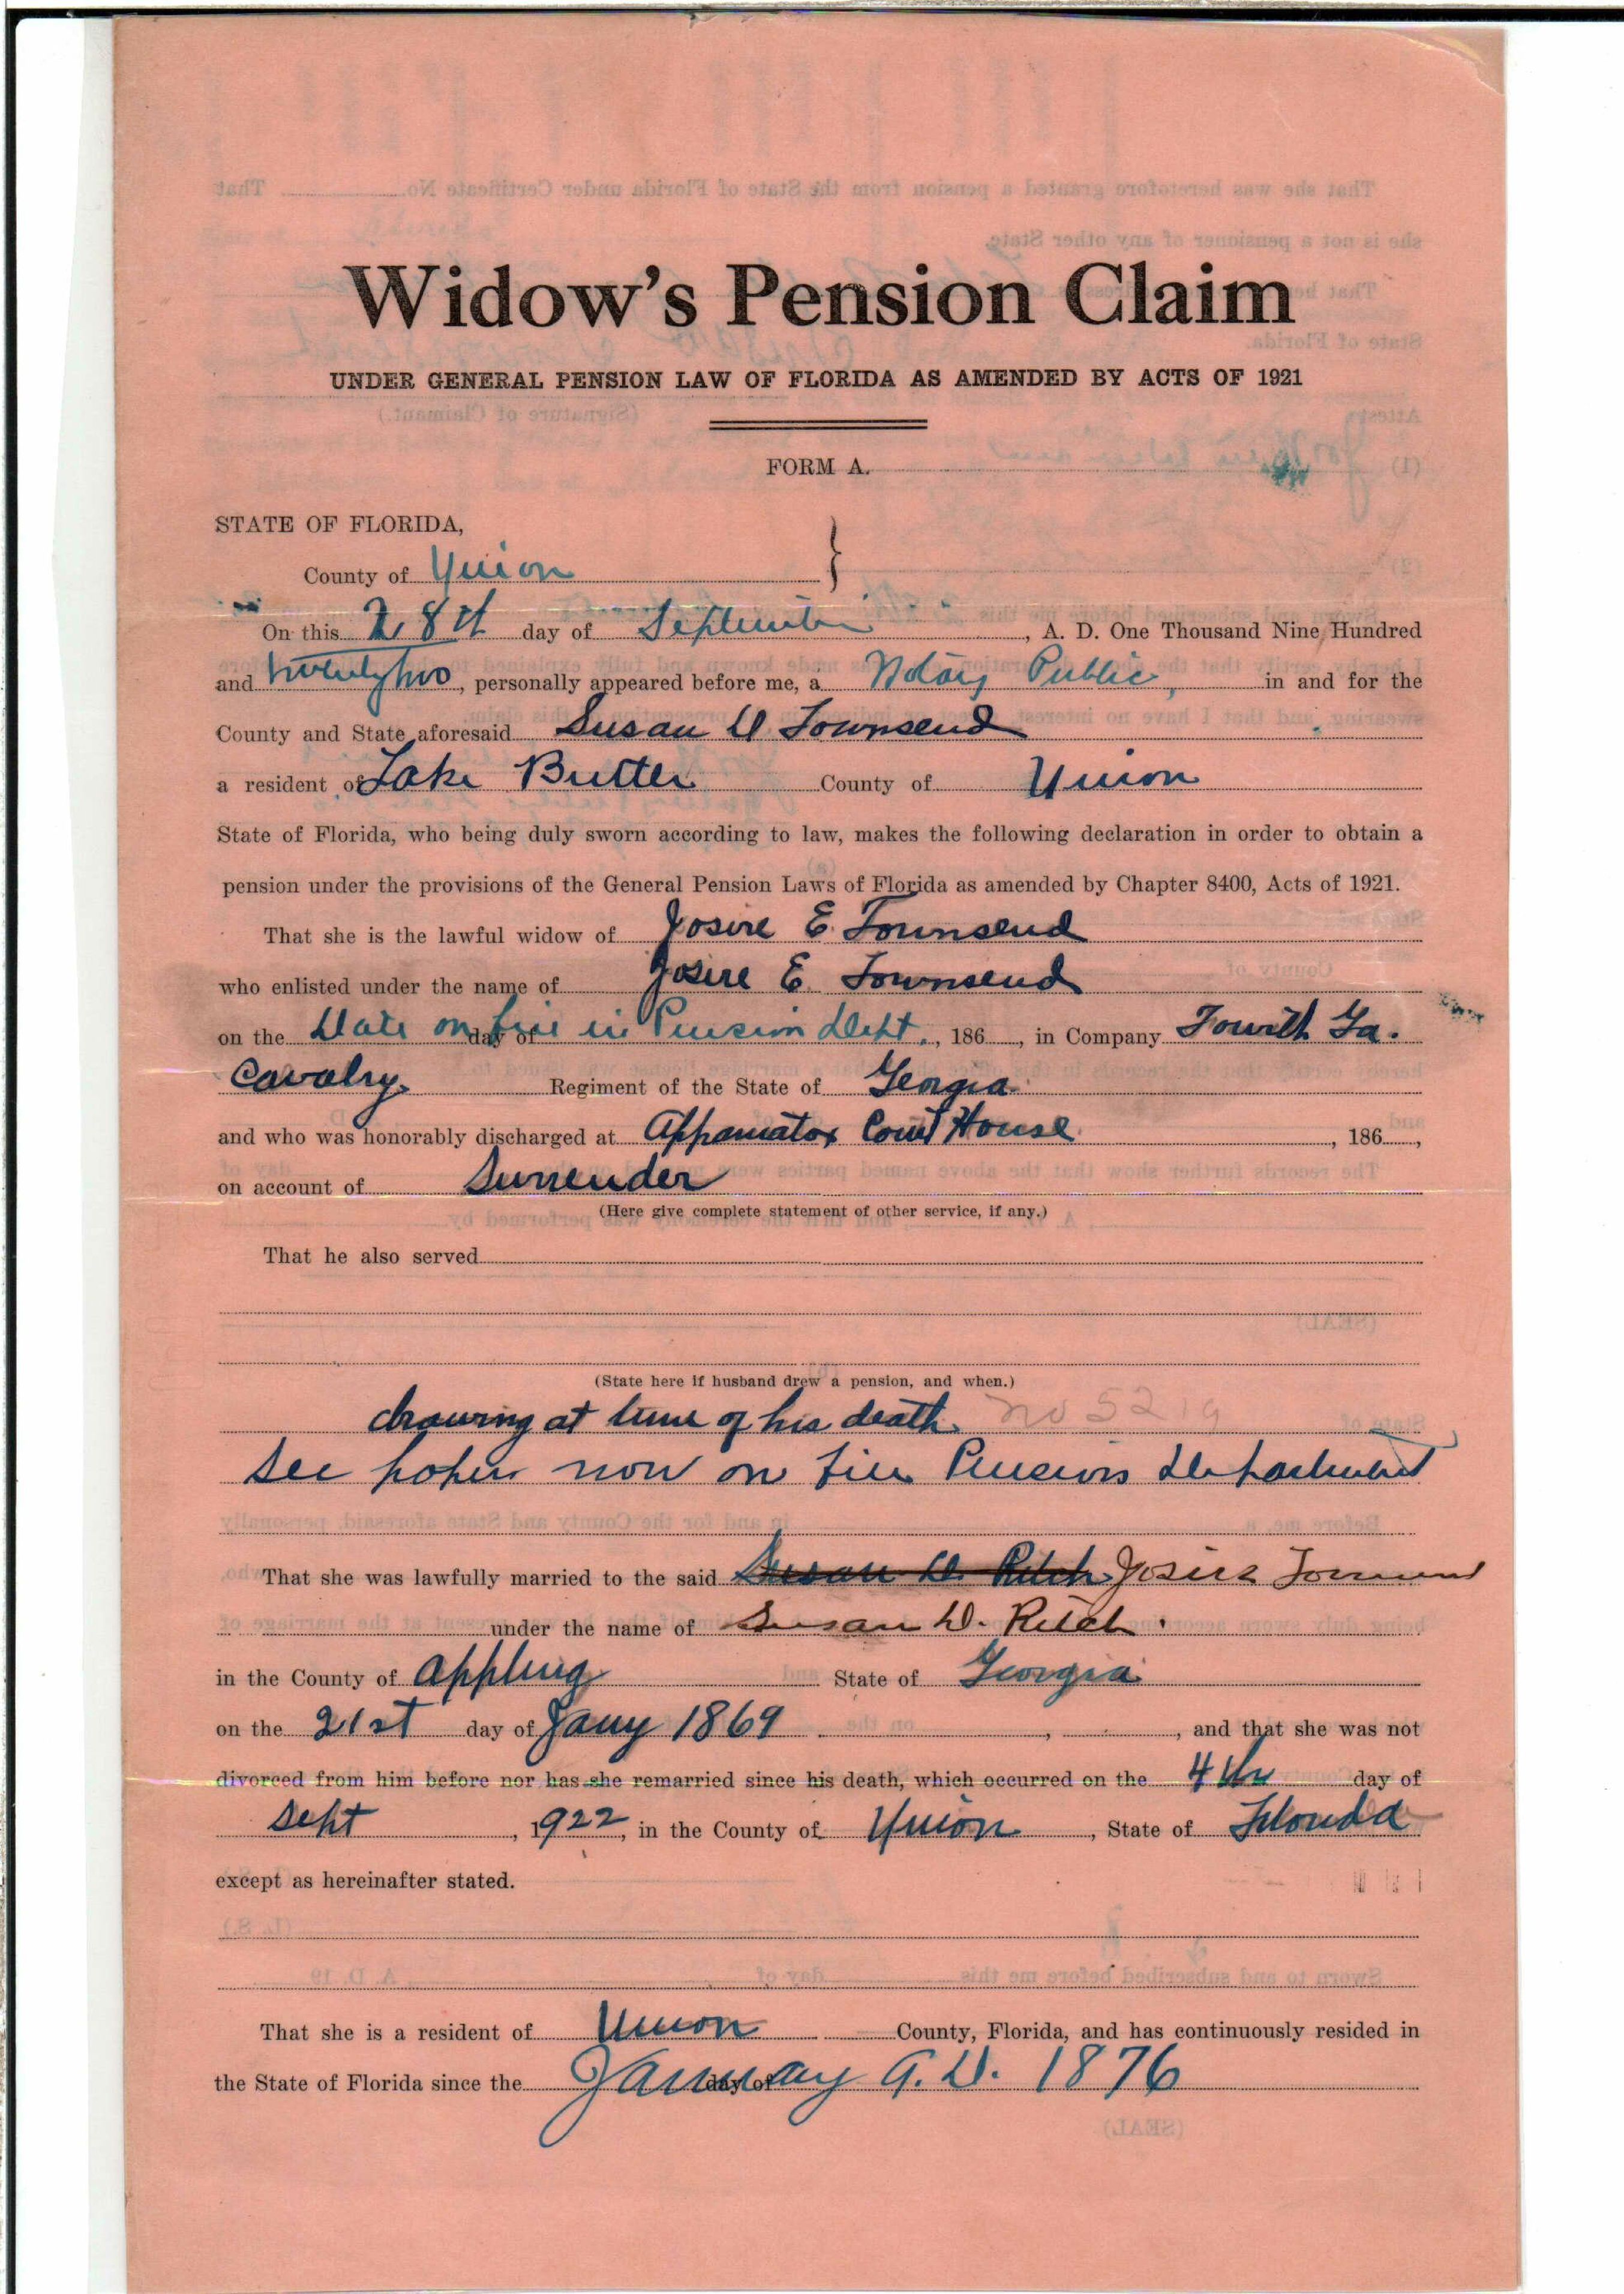 Widow's Pension Claim
UNDER GENERAL PENSION LAW OF FLORIDA AS AMENDED BY ACTS OF 1921
FORM A.
STATE OF FLORIDA,
County of Union
On this 28th day of September, A. D. One Thousand Nine Hundred
and twenty two, personally appeared before me, a Notary Public, in and for the
County and State aforesaid Susan D Townsend
a resident of Lake Butler County of Union
State of Florida, who being duly sworn according to law, makes the following declaration in order to obtain a
pension under the provisions of the General Pension Laws of Florida as amended by Chapter 8400, Acts of 1921.
That she is the lawful widow of Josire E. Townsend
who enlisted under the name of Josire E. Townsend
on the Date on file in Pension Dept. day of, 186 , in Company Fourth Ga.
Cavalry Regiment of the State of Georgia
and who was honorably discharged at Appamatox Court House, 186 ,
on account of Surrender
(Here give complete statement of other service, if any.)
That he also served
(State here if husband drew a pension, and when.)
drawing at time of his death no 5219
See papers now on file Pensions Department
That she was lawfully married to the said Susan D. Ritch Josire Townsend
under the name of Susan D. Ritch.
in the County of Appling State of Georgia
on the 21st day of Jany 1869 , , and that she was not
divorced from him before nor has she remarried since his death, which occurred on the 4th day of
Sept, 1922, in the County of Union, State of Florida
except as hereinafter stated.
That she is a resident of Union County, Florida, and has continuously resided in
the State of Florida since the January day of A.D. 1876